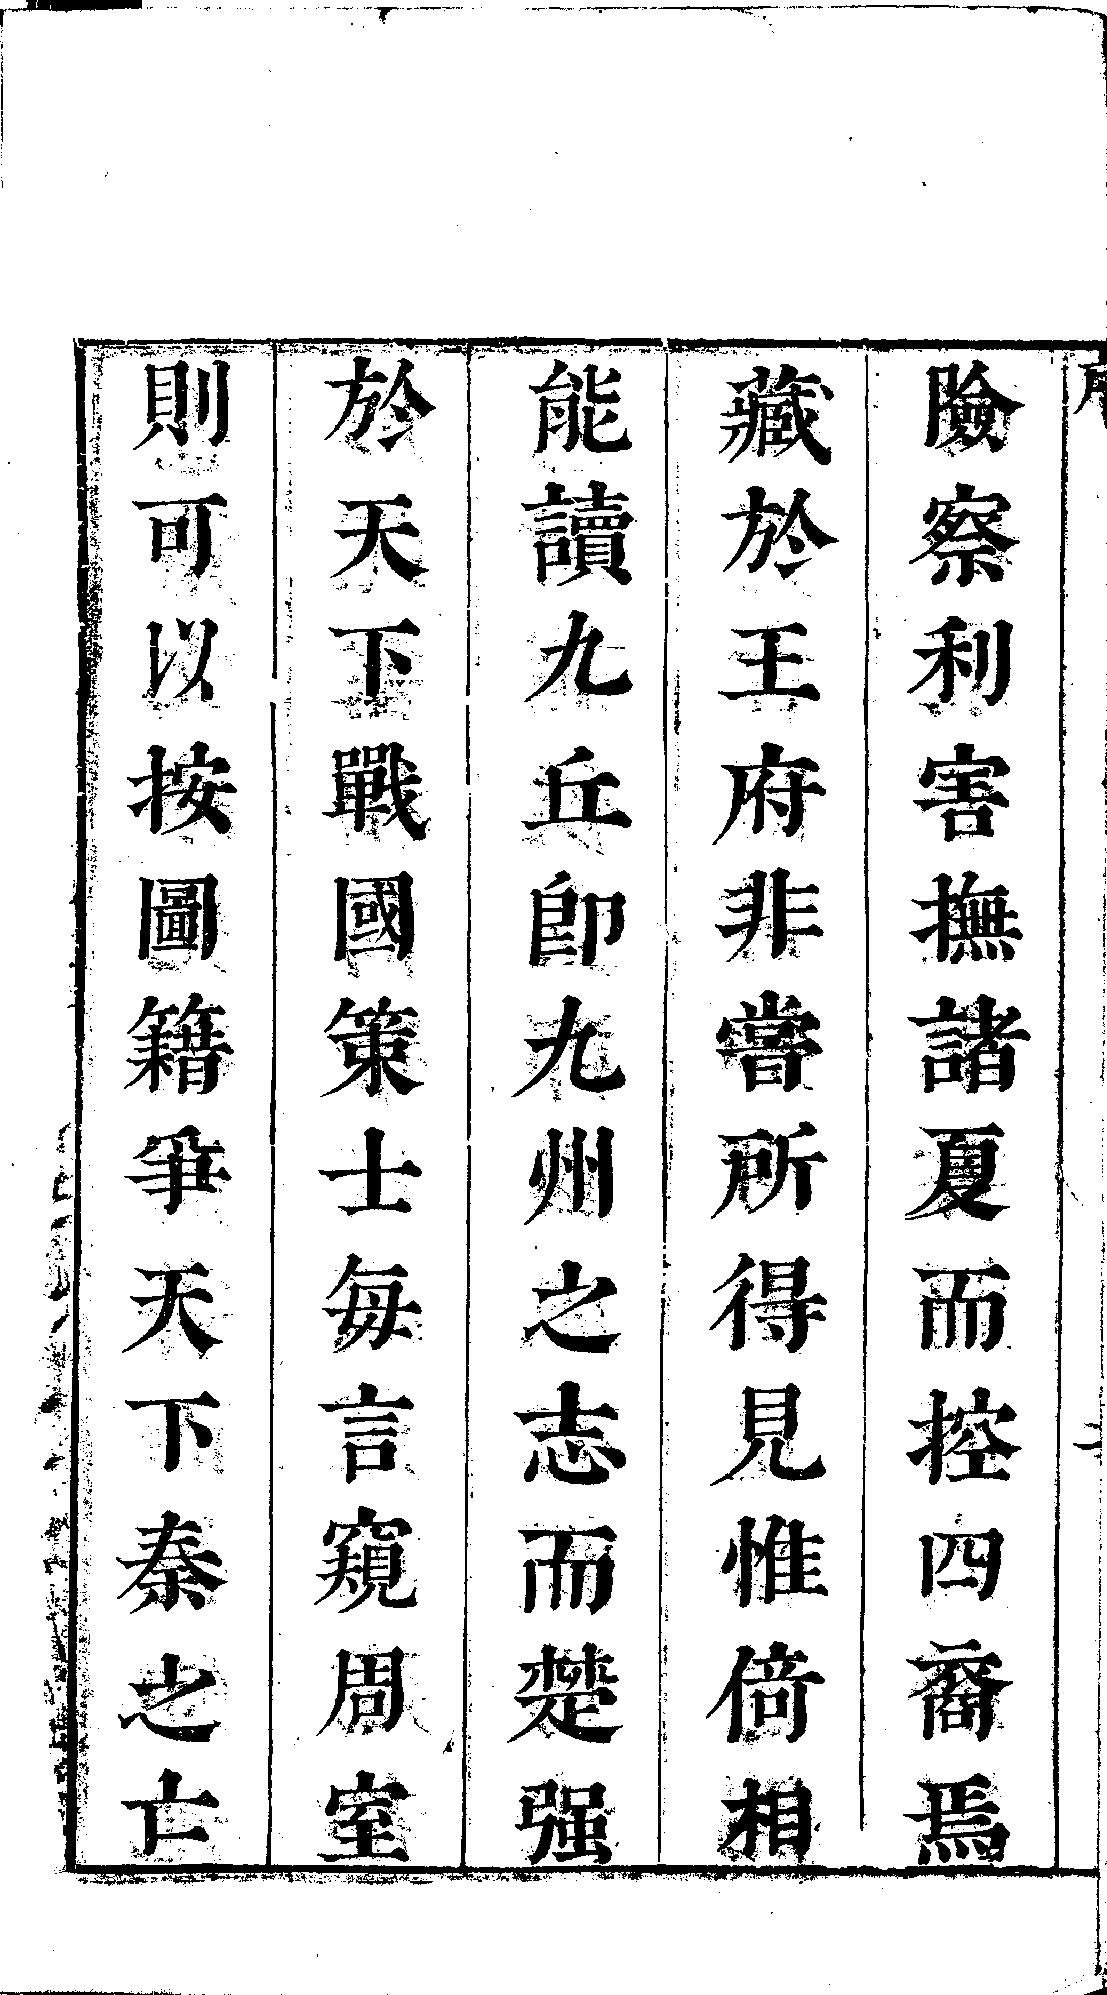 險察利害撫諸夏而控四裔焉
藏於王府非嘗所得見惟倚相
能讀九丘卽九州之志而楚强
於天下戰國策士每言窺周室
則可以按圖籍爭天下秦之亡